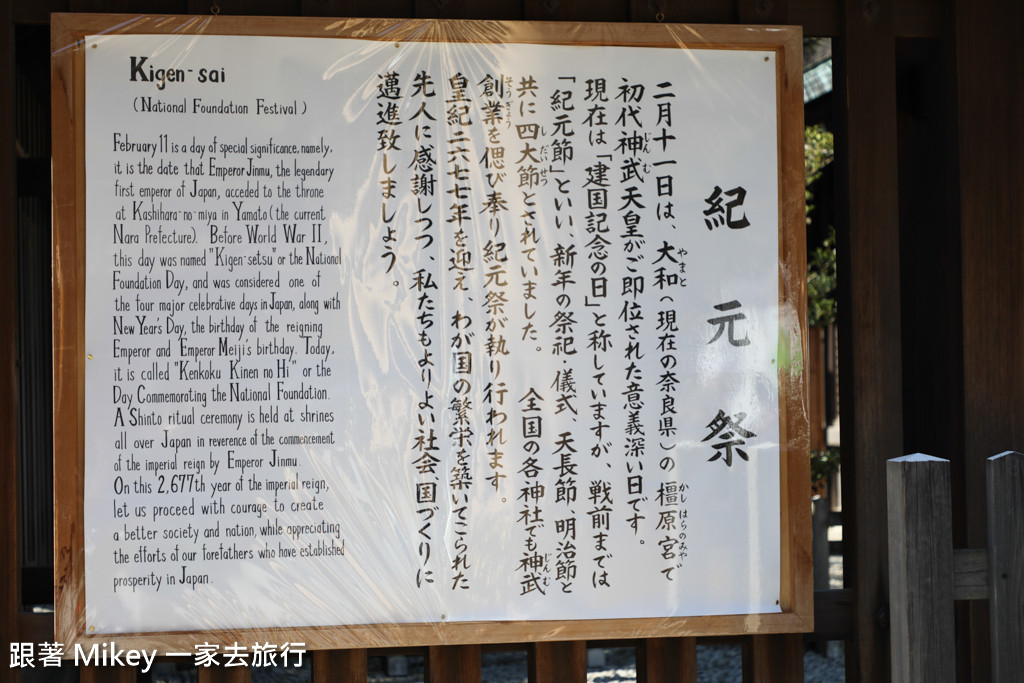 Kigen-sai
(National Foundation Festival)
February 11 is a day of special significance, namely,
it is the date that Emperor Jinmu, the legendary
first emperor of Japan, acceded to the throne
at Kashihara-no-miya in Yamato (the current
Nara Prefecture). Before World War II,
this day was named "Kigen-setsu" or the National
Foundation Day, and was considered one of
the four major celebrative days in Japan, along with
New Year's Day, the birthday of the reigning
Emperor and Emperor Meiji's birthday. Today,
it is called "Kenkoku Kinen no Hi" or the
Day Commemorating the National Foundation.
A Shinto ritual ceremony is held at shrines
all over Japan in reverence of the commencement
of the imperial reign by Emperor Jinmu.
On this 2,677th year of the imperial reign,
let us proceed with courage to create
a better society and nation, while appreciating
the efforts of our forefathers who have established
prosperity in Japan.
紀元祭
二月十一日は、大和(現在の奈良県)の橿原宮で
初代神武天皇がご即位された意義深い日です。
現在は「建国記念の日」と称していますが、戦前までは
「紀元節」といい、新年の祭祀・儀式、天長節、明治節と
共に四大節とされていました。 全国の各神社でも神武
創業を偲び奉り紀元祭が執り行われます。
皇紀二六七七年を迎え、わが国の繁栄を築いてこられた
先人に感謝しつつ、私たちもよりよい社会、国づくりに
邁進致しましょう。
跟著 Mikey 一家去旅行